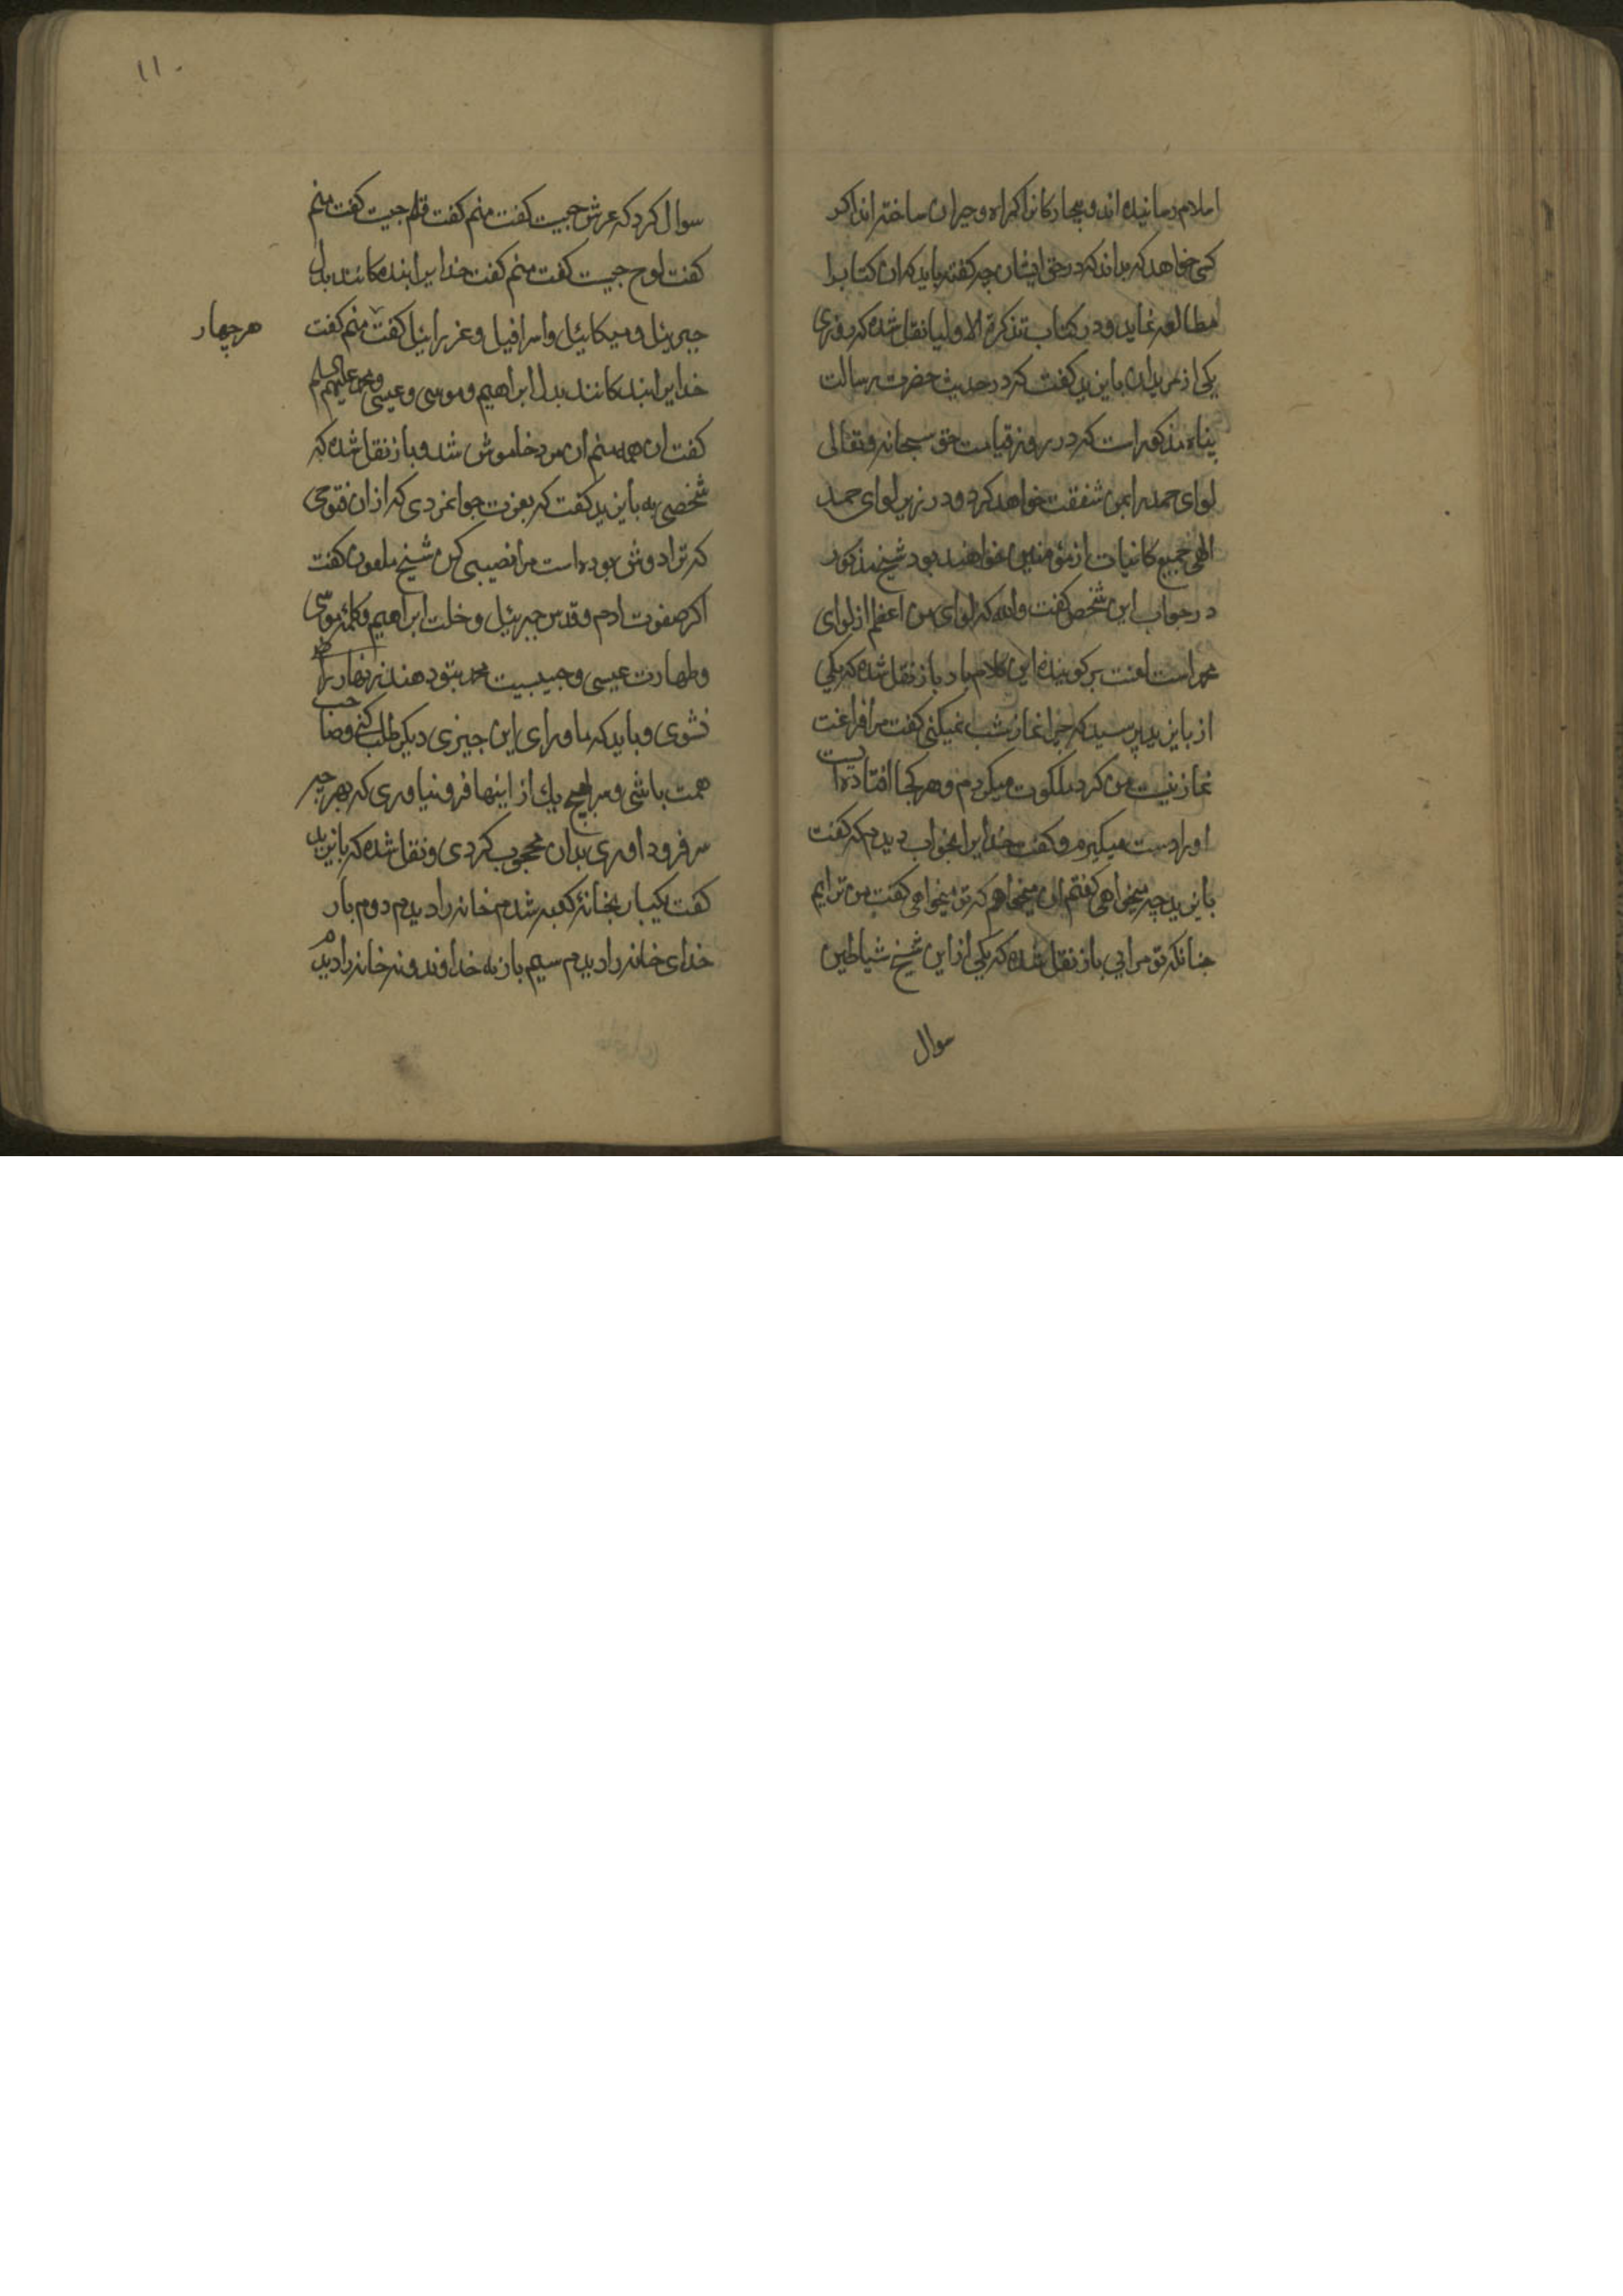 اسلام رسانیده اند و بیچارکانرا کمراه و حیران ساخته اند اکر
کسی خواهد که بداند که در حق ایشان چه کفته باید که ان کتابرا
مطالعه نماید و در کتاب تذکرة الاولیا نقل شده که روزی
یکی از مریدان بایزید کفت که در حدیث حضرت رسالت
پناه مذکور است که در روز قیامت حق سبحانه و تعالی
لوای حمد برا بمن شفقت خواهد کرد و در زیر لوای حمد
الهی جمیع کاینات از مؤمنین خواهند بود شیخ مذکور
در جواب این شخص کفت والله که لوای من اعظم از لوای
محمد است لعنت بر کوینده این کلام باد باز نقل شده که یکی
از بایزید پرسید که چرا نماز شب نمیکنی کفت مرا فراغت
نماز نیست من کرد ملکوت میکردم و هر کجا افتاده است
او را دست میکیرم و کفت خدایرا بخواب دیدم که کفت
بایزید چه میخواهی کفتم ان میخواهم که تو میخواهی کفت من ترایم
جنانکه تو مرایی باز نقل شده که یکی از این شیخ شیاطین
سوال
۱۱
سوال کرد که عرش جیست کفت منم کفت قلم جیست کفت منم
کفت لوح جیست کفت منم کفت خدایرا بندکانند بدل
جبرئیل و میکائیل و اسرافیل و عزرائیل کفت منم کفت
هر چهار
خدایرا بندکانند بدل ابراهیم و موسی و عیسی و محمد علیهم السلم
کفت ان همه منم ان مرد خاموش شد و باز نقل شده که
شخصی به بایزید کفت که بعزت جوانمردی که از ان فتوحی
که ترا دوش بوده است مرا نصیبی کن شیخ ملعون کفت
اکر صفوت ادم و قدس جبرئیل و خلت ابراهیم و کلمه موسی
و طهارت عیسی و حبیبیت محمد بتو دهند زنهار راضی
نشوی و باید که ماورای این جیزی دیکر طلب کنی و صاحب
همت باشی و سر بهیچ یك از اینها فرو نیاوری که بهر چه
سر فرود اوری بدان محجوب کردی و نقل شده که بایزید
کفت یکبار بخانه کعبه شدم خانه را دیدم دوم بار
خدای خانه را دیدم سیم بار نه خداوند و نه خانه را دیدم